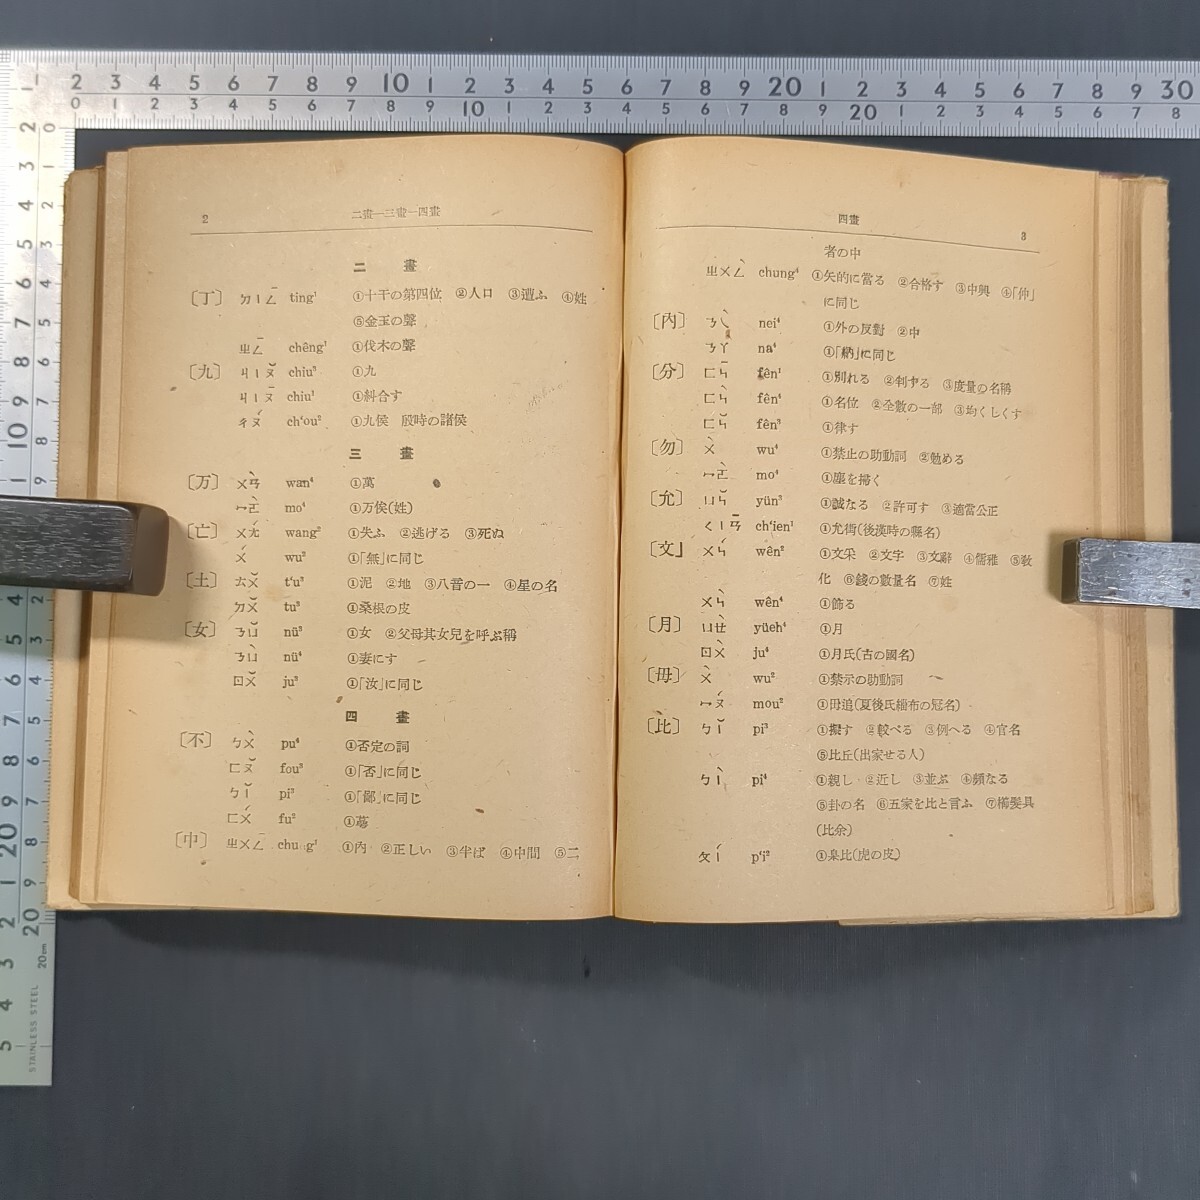 2
二畫—三畫—四畫
二 畫
〔丁〕 ㄉㄧㄥ ting¹ ①十干の第四位 ②人口 ③遭ふ ④姓
⑤金玉の聲
ㄓㄥ chêng¹ ①伐木の聲
〔九〕 ㄐㄧㄡˇ chiu³ ①九
ㄐㄧㄡ chiu¹ ①糾合す
ㄔㄡˊ ch‘ou² ①九侯 殷時の諸侯
三 畫
〔万〕 ㄨㄢˋ wan⁴ ①萬
ㄇㄛˋ mo⁴ ①万俟(姓)
〔亡〕 ㄨㄤˊ wang² ①失ふ ②逃げる ③死ぬ
ㄨˊ wu² ①「無」に同じ
〔土〕 ㄊㄨˇ t‘u³ ①泥 ②地 ③八音の一 ④星の名
ㄉㄨˇ tu³ ①桑根の皮
〔女〕 ㄋㄩˇ nü³ ①女 ②父母其女兒を呼ぶ稱
ㄋㄩˋ nü⁴ ①妻にす
ㄖㄨˇ ju³ ①「汝」に同じ
四 畫
〔不〕 ㄅㄨˋ pu⁴ ①否定の詞
ㄈㄡˇ fou³ ①「否」に同じ
ㄅㄧˇ pi³ ①「鄙」に同じ
ㄈㄨˊ fu² ①萼
〔中〕 ㄓㄨㄥ chu g¹ ①內 ②正しい ③半ば ④中間 ⑤二
四畫
3
者の中
ㄓㄨㄥˋ chung⁴ ①矢的に當る ②合格す ③中興 ④「仲」
に同じ
〔內〕 ㄋㄟˋ nei⁴ ①外の反對 ②中
ㄋㄚˋ na⁴ ①「納」に同じ
〔分〕 ㄈㄣ fên¹ ①別れる ②判ずる ③度量の名稱
ㄈㄣˋ fên⁴ ①名位 ②全數の一部 ③均くしくす
ㄈㄣˇ fên³ ①律す
〔勿〕 ㄨˋ wu⁴ ①禁止の助動詞 ②勉める
ㄇㄛˋ mo⁴ ①塵を掃く
〔允〕 ㄩㄣˇ yün³ ①誠なる ②許可す ③適當公正
ㄑㄧㄢ ch‘ien¹ ①允街(後漢時の縣名)
〔文〕 ㄨㄣˊ wên² ①文采 ②文字 ③文辭 ④儒雅 ⑤敎
化 ⑥錢の數量名 ⑦姓
ㄨㄣˋ wên⁴ ①飾る
〔月〕 ㄩㄝˋ yüeh⁴ ①月
ㄖㄨˋ ju⁴ ①月氏(古の國名)
〔毋〕 ㄨˊ wu² ①禁示の助動詞
ㄇㄡˊ mou² ①毋追(夏後氏緇布の冠名)
〔比〕 ㄅㄧˇ pi³ ①擬す ②較べる ③例へる ④官名
⑤比丘(出家せる人)
ㄅㄧˋ pi⁴ ①親し ②近し ③並ぶ ④頻なる
⑤卦の名 ⑥五家を比と言ふ ⑦櫛髮具
(比余)
ㄆㄧˊ p‘i² ①皐比(虎の皮)
2 3 4 5 6 7 8 9 10 1 2 3 4 5 6 7 8 9 20 1 2 3 4 5 6 7 8 9 30
0 1 2 3 4 5 6 7 8 9 10 1 2 3 4 5 6 7 8 9 20 1 2 3 4 5 6 7 8
20cm
STAINLESS STEEL